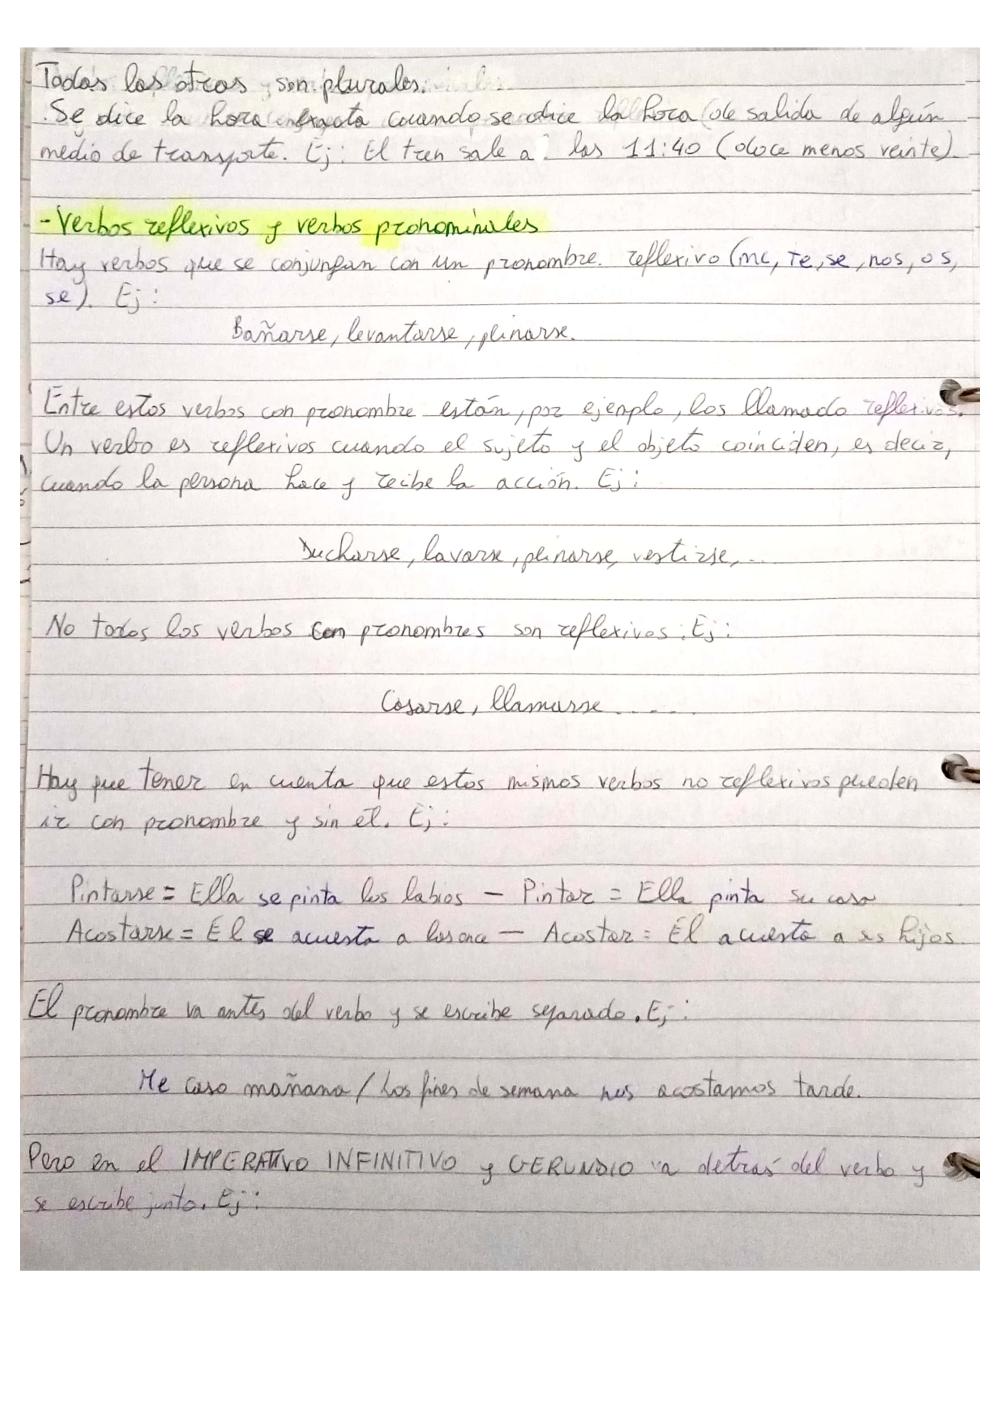 Todas las otras son plurales.
. Se dice la hora exacta cuando se dice la hora (de salida de algún
medio de transporte. Ej: El tren sale a las 11:40 (doce menos veinte).
- Verbos reflexivos y verbos pronominales
Hay verbos que se conjungan con un pronombre. reflexivo (me, te, se, nos, os,
se). Ej:
Bañarse, levantarse, peinarse.
Entre estos verbos con pronombre están, por ejemplo, los llamado reflexivos.
Un verbo es reflexivos cuando el sujeto y el objeto coinciden, es decir,
cuando la persona hace y recibe la acción. Ej:
Ducharse, lavarse, peinarse, vestirse,...
No todos los verbos con pronombres son reflexivos. Ej:
Casarse, llamarse .....
Hay que tener en cuenta que estos mismos verbos no reflexivos pueden
ir con pronombre y sin el. Ej:
Pintarse = Ella se pinta los labios - Pintar = Ella pinta su casa
Acostarse = Él se acuesta a las once - Acostar = Él acuesta a sus hijos.
El pronombre va antes del verbo y se escribe separado. Ej:
Me caso mañana / Los fines de semana nos acostamos tarde.
Pero en el IMPERATIVO INFINITIVO y GERUNDIO va detrás del verbo y
se escribe junto. Ej: